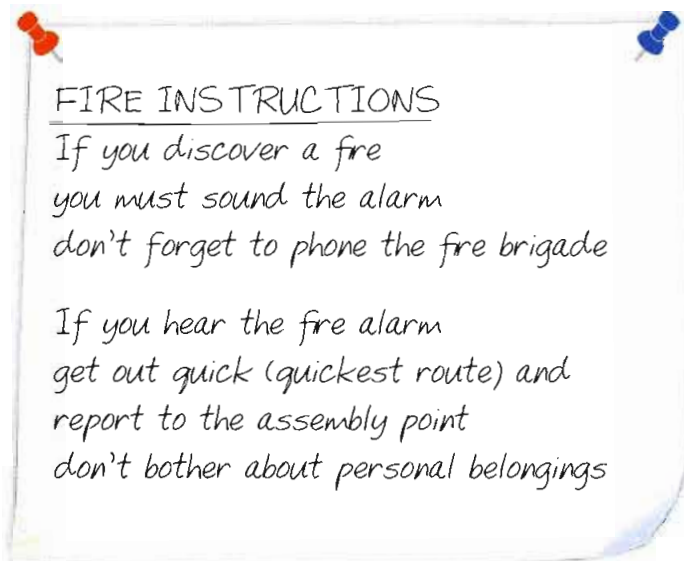 FIRE INSTRUCTIONS
If you discover a fire
you must sound the alarm
don't forget to phone the fire brigade
If you hear the fire alarm
get out quick (quickest route) and
report to the assembly point
don't bother about personal belongings